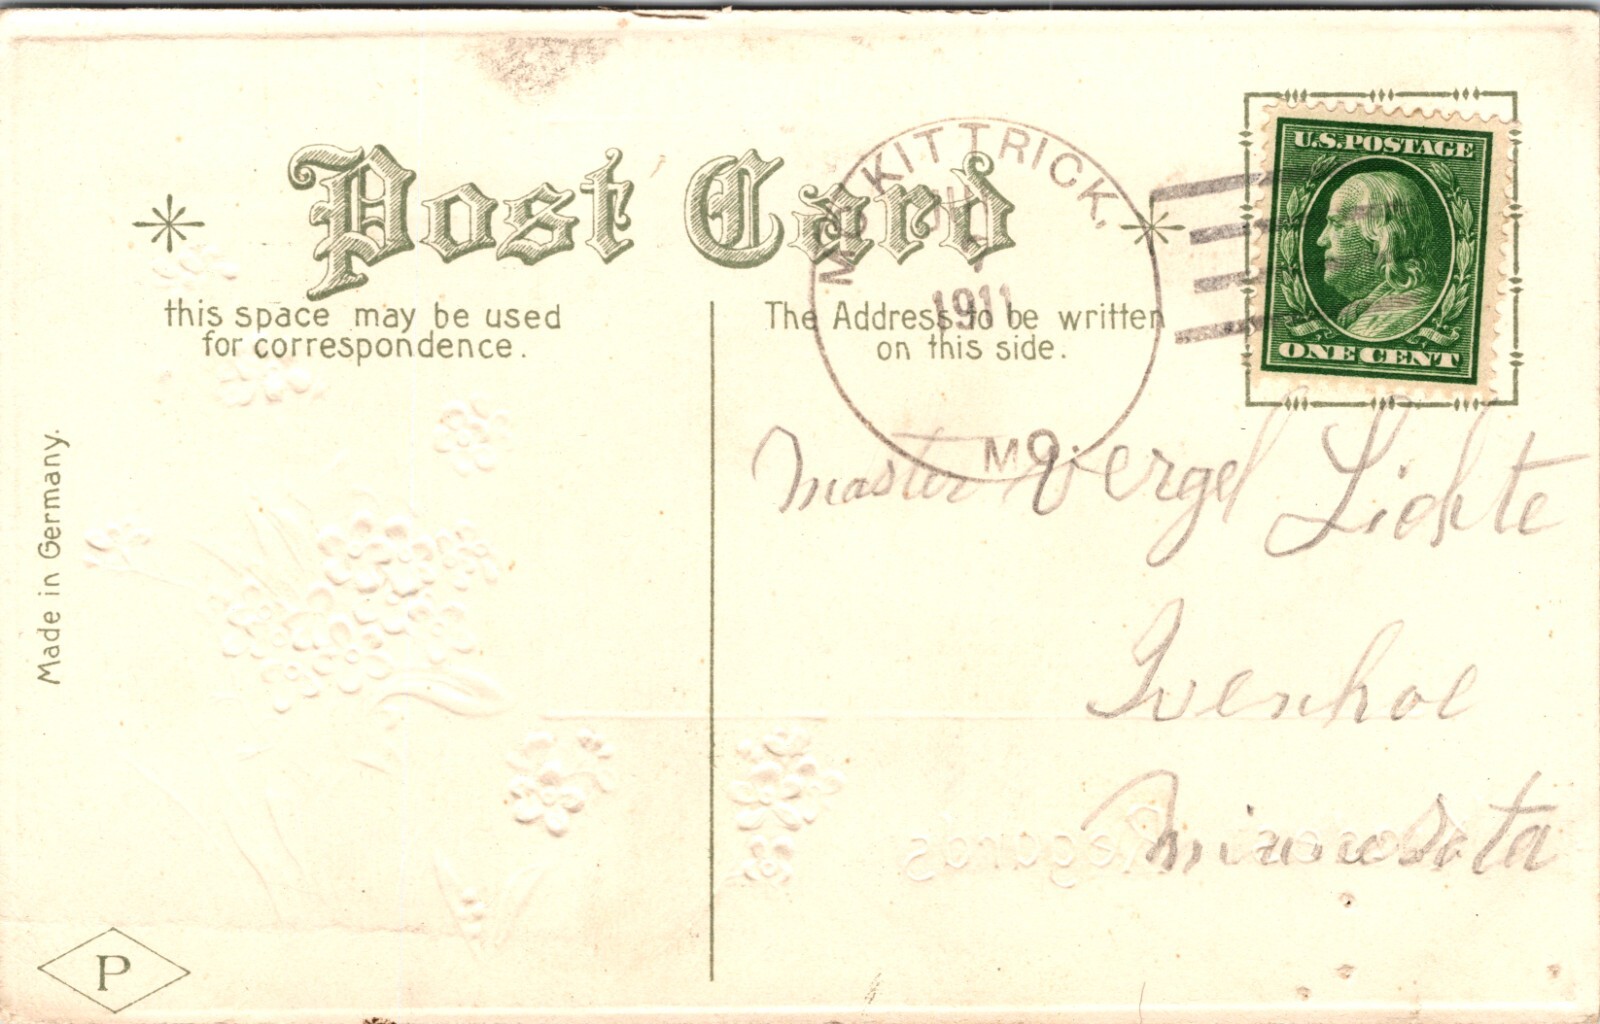 Post Card
this space may be used
for correspondence.
The Address to be written
on this side.
MCKITTRICK,
1911
MO.
U.S.POSTAGE
ONE CENT
Master Vergel Lickte
Ivenhoe
Minnesota
Regards
Made in Germany.
P